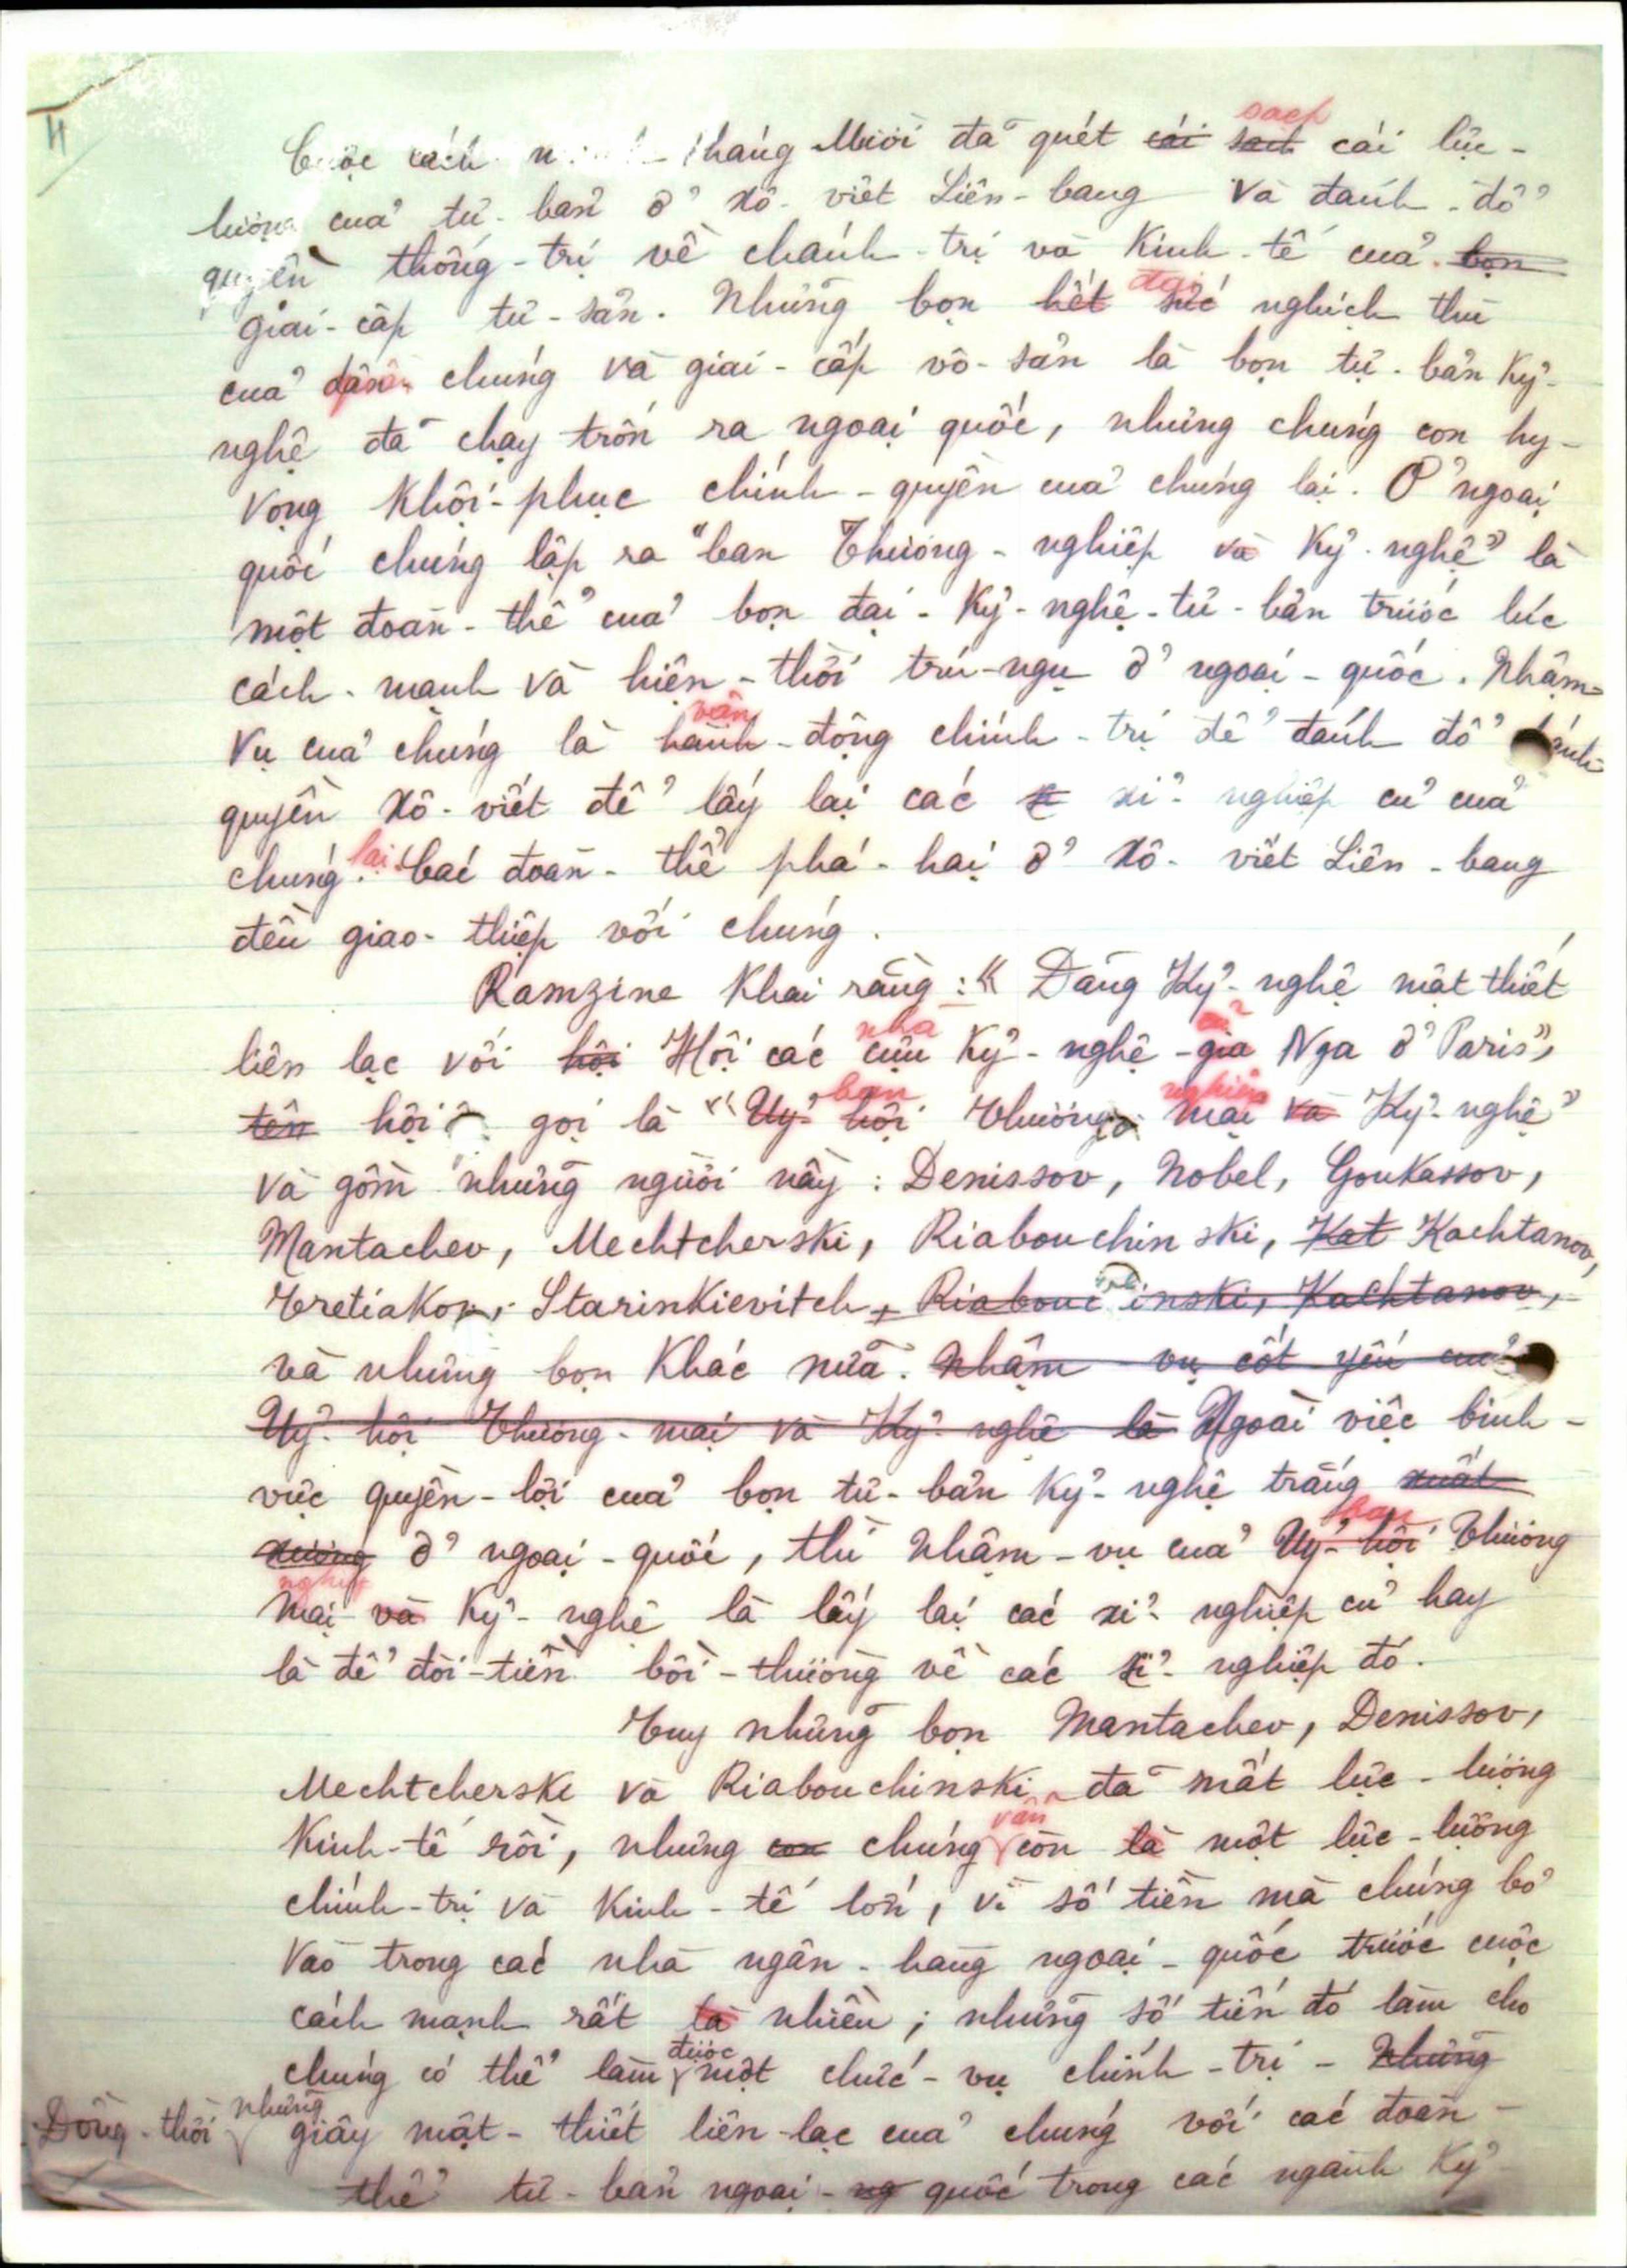 4
Cuộc cách mạnh tháng Mười đã quét cái sạch sạch cái lực-
lượng của tư-bản ở Xô-viết Liên-bang và đánh-đổ
quyền thống-trị về chánh-trị và Kinh-tế của bọn
giai-cấp tư-sản. Những bọn hết sức đại nghịch thù
của dân chúng và giai-cấp vô-sản là bọn tư-bản Kỹ-
nghệ đã chạy trốn ra ngoại quốc, nhưng chúng còn hy-
vọng Khôi-phục chính-quyền của chúng lại. Ở ngoại
quốc chúng lập ra "ban Thương-nghiệp và Kỹ-nghệ" là
một đoàn-thể của bọn đại-Kỹ-nghệ-tư-bản trước lúc
cách-mạnh và hiện-thời trú-ngụ ở ngoại-quốc. Nhậm-
vụ của chúng là hành vận-động chính-trị để đánh đổ chánh-
quyền Xô-viết để lấy lại các x xí-nghiệp cũ của
chúng lại. Các đoàn-thể phá-hại ở Xô-viết Liên-bang
đều giao-thiệp với chúng.
Ramzine Khai rằng: "Đảng Kỹ-nghệ mật thiết
liên lạc với hội Hội các nhà cựu Kỹ-nghệ-gia cũ Nga ở Paris",
tên hội gọi là "Uỷ-hội ban Thương mại nghiệp và Kỹ-nghệ"
và gồm những người nầy: Denissov, Nobel, Goukassov,
Mantachev, Mechtcherski, Riabouchinski, Kat Kachtanov,
Tretiakov, Starinkievitch, Riabouchinski, Kachtanov,
và những bọn Khác nữa. Nhậm vụ cốt yếu của
Uỷ-hội Thương-mại và Kỹ-nghệ là Ngoài việc binh-
vực quyền-lợi của bọn tư-bản Kỹ-nghệ trắng xuất
xương ở ngoại-quốc, thì nhậm-vụ của Uỷ-hội ban Thương
mại nghiệp và Kỹ-nghệ là lấy lại các xí-nghiệp cũ hay
là để đòi-tiền bồi-thường về các xí-nghiệp đó.
Tuy những bọn Mantachev, Denissov,
Mechtcherske và Riabouchinski đã mất lực-lượng
Kinh-tế rồi, nhưng con chúng vẫn còn là một lực-lượng
chính-trị và Kinh-tế lớn, vì số tiền mà chúng bỏ
vào trong các nhà ngân-hàng ngoại-quốc trước cuộc
cách mạnh rất là nhiều; những số tiền đó làm cho
chúng có thể làm được một chức-vụ chính-trị - Những
Đồng-thời những giây mật-thiết liên-lạc của chúng với các đoàn-
thể tư-bản ngoại-ng quốc trong các ngành Kỹ-